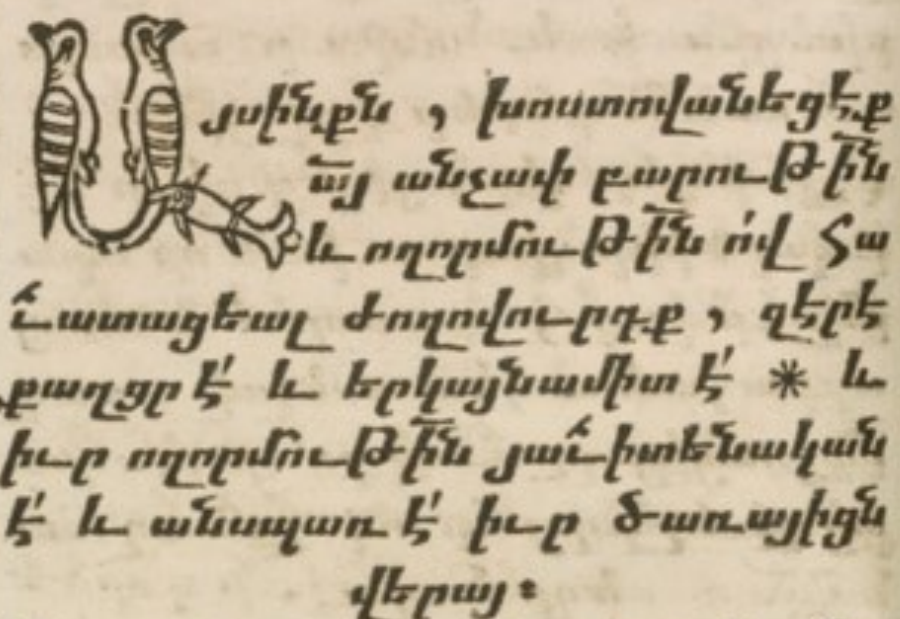 Այսինքն , խոստովանեցէ՛ք
ա՟յ անչափ բարութի՟ն
և ողորմութի՟ն ո՛վ Հա
ւ՛ատացեալ ժողովուրդք , զէրէ
քաղցր է՛ և երկայնամիտ է՛ * և
իւր ողորմութի՟ն յաւ՛իտենական
է՛ և անսպառ է՛ իւր ծառայիցն
վերայ ։